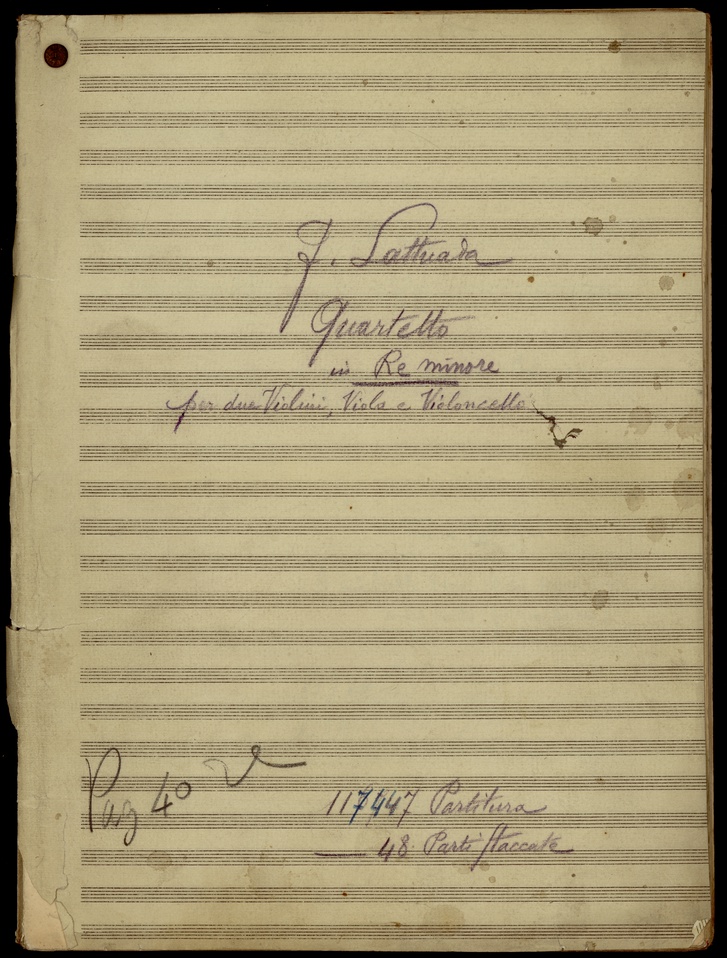 F. Lattuada
Quartetto
in Re minore
per due Violini, Viola e Violoncello
Pag 40
117447 Partitura
— 48 Parti staccate